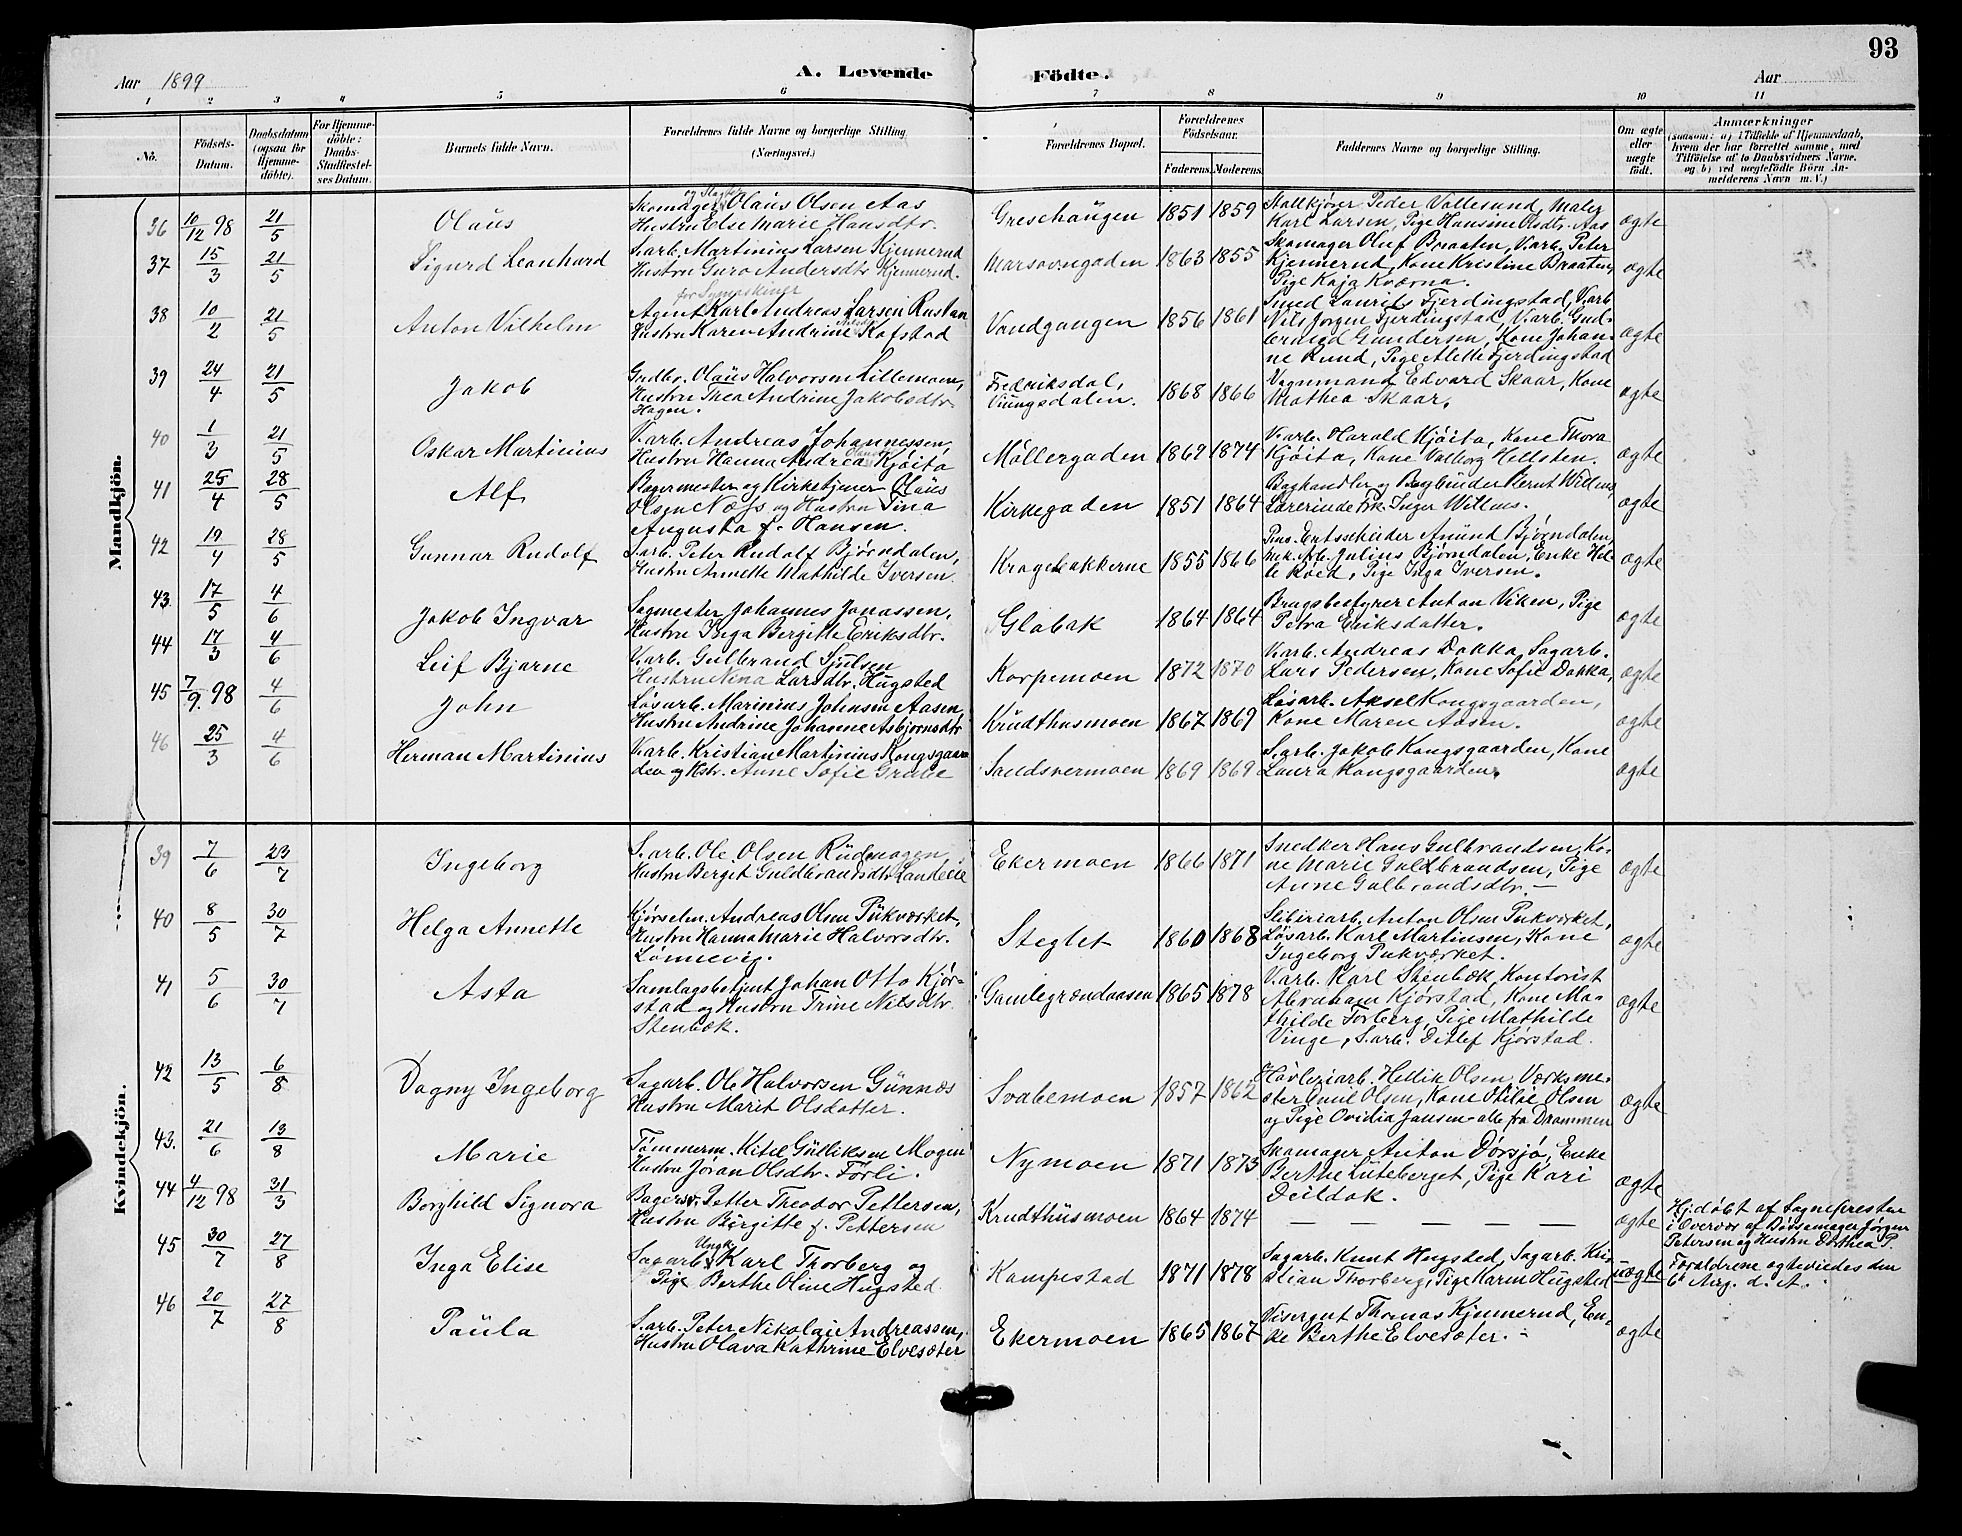 93
Aar 1899
A. Levende
Födte.
Aar
1 2 3 4 5 6 7 8 9 10 11
No.
Födsels-Datum.
Daabsdatum (ogsaa for Hjemme-döbte).
For Hjemme-döbte: Daabs-Stadfæstel-ses Datum.
Barnets fulde Navn.
Forældrenes fulde Navne og borgerlige Stilling. (Næringsvei.)
Forældrenes Bopæl.
Forældrenes Födselsaar.
Faderens. Moderens.
Faddernes Navne og borgerlige Stilling.
Om ægte eller uægte födt.
Anmærkninger
(saasom: a) i Tilfælde af Hjemmedaab, hvem der har forrettet samme, med Tilföielse af to Daabsvidners Navne. og b) ved uægtefödte Börn An-melderens Navn m. V.)
Mandkjön.
36 10/12 98 21/5 Olaüs
Skomager og Slagter Olaüs Olsen Aas
Hustru Else Marie Hansdtr.
Greschaugen 1851 1859
Staldkjører Peder Vollesund, Maler
Karl Larsen, Pige Hansine Olsdtr. Aas
ægte
37 15/3 21/5 Sigurd Leonhard
S.arb. Martinius Larsen Kjennerud
Hustru Guro Andersdtr Kjennerud.
Marsovngaden 1863 1855
Skomager Oluf Braaten, V.arb. Peter
Kjennerud, Kone Kristine Braaten,
Pige Kaja Kværna.
ægte
38 10/2 21/5 Anton Vilhelm
for Symaskiner
Agent Karl Andreas Larsen Rustan
Hustru Karen Andrine Kafstad
Vandgangen 1856 1861
Smed Laurits Fjerdingstad, V.arb
Nils Jørgen Fjerdingstad, V.arb. Gud-
Gundersen, Kone Johan-
ne Rund, Pige Alette Fjerdingstad
ægte
39 24/4 21/5 Jakob
Gudbr. Olaüs Halvorsen Lillemoen,
Hustru Thea Andrine Jakobsdtr.
Hagen.
Fredriksdal,
Viungsdalen. 1868 1866
Vognmand Edvard Skaar, Kone
Mathea Skaar.
ægte
40 1/3 21/5 Oskar Martinius
V.arb. Andreas Johannessen,
Hustru Hanna Andrea Kjøita
Møllergaden 1869 1874
V.arb. Harald Kjøita, Kone Thora
Kjøita, Kone Valborg Hellsten.
ægte
41 25/4 28/5 Alf
Bagermester og Kirketjener Olaüs
Olsen Næss og Hustru Tina
Augusta f. Hansen.
Kirkegaden 1851 1864
Boghandler og Bogbinder Bernt Willms,
Lærerinde Frk. Inger Willms.
ægte
42 19/4 28/5 Gunnar Rudolf
S.arb. Peter Rudolf Bjørndalen,
Hustru Annette Mathilde Iversen.
Kragebakkerne 1855 1866
Amünd Bjørndalen,
mek. Arb. Julius Bjørndalen, Enke Hel-
le Røed, Pige Inga Iversen.
ægte
43. 17/5 4/6 Jakob Ingvar
Sagmester Johannes Jonassen,
Hustru Inga Bergitte Eriksdtr.
Glabak 1864 1864
Brugsbestyrer Anton Viken, Pige
Petra Eriksdatter.
ægte
44 17/3 4/6 Leif Bjarne
V.arb. Gulbrand Sjulsen
Hustru Nina Larsdtr. Hügsted
Korpemoen 1872 1870
V.arb. Andreas Dokka, Sagarb.
Lars Pedersen, Kone Sofie Dokka,
ægte
45 7/9. 98 4/6 John
Løsarb. Marinius Johnsen Aasen,
Hustru Andrine Johanne Asbjørnsdtr
Krüdthusmoen 1867 1869
Løsarb. Aksel Kongsgaarden,
Kone Maren Aasen.
ægte
46 25/3 4/6 Herman Martinius
V.arb. Kristian Martinius Kongsgaar-
den og Hstr. Anne Sofie Grane
Sandsværmoen 1869 1869
S.arb. Jakob Kongsgaarden, Kone
Laura Kongsgaarden.
ægte
Kvindekjön.
39 7/6 23/7 Ingeborg
S.arb. Ole Olsen Rüdmogen
Hustru Berget Guldbrandsdtr. Landeeie
Ekermoen 1866 1871
Snedker Hans Gulbrandsen, Ko-
ne Marie Guldbrandsen, Pige
Anne Gulbrandsdtr. —
ægte
40 8/5 30/7 Helga Annette
Kjørselm. Andreas Olsen Pükværket,
Hustru Hanna Marie Halvorsdtr.
Lønnevig.
Steglet 1860 1868
Sliberiarb. Anton Olsen Pukværket,
Løsarb. Karl Martinsen, Kone
Ingeborg Pukværket.
ægte
41 5/6 30/7 Asta
Samlagsbetjent Johan Otto Kjør-
stad og Hustru Trine Nilsdtr.
Stenbæk.
Gamlegrændaasen 1865 1878
V.arb. Karl Stenbæk, Kontorist
Abraham Kjørstad, Kone Ma-
thilde Torberg, Pige Mathilde
Vinge, S.arb. Ditlef Kjørstad.
ægte
42 13/5 6/8 Dagny Ingeborg
Sagarb. Ole Halvorsen Günnæs
Hustru Marit Olsdatter.
Svabemoen 1857 1862
Høvleriarb. Hellik Olsen, Værksme-
ster Emil Olsen, Kone Otilie Olsen
og Pige Ovidia Jansen – alle fra Drammen
ægte
43. 21/6 13/8 Marie
Tømmerm. Kitil Gülliksen Mogen
Hustru Jøran Olsdtr. Førli.
Nymoen 1871 1873
Skomager Anton Dørsjø, Enke
Berthe Lüteberget, Pige Kari
Deildok.
ægte
44 4/12 98 31/3 Borghild Signora
Bagersv. Petter Theodor Pettersen,
Hustru Birgitte f. Pettersen
Krudthüsmoen 1864 1874
— — — — —
ægte
Hj.døbt af Sognepresten
i Overvær af Bøssemager Jørgen
Petersen og Hustru Dorthea P.
45 30/7 27/8 Inga Elise
Sagarb. Ungk. Karl Thorberg og
Pige Berthe Oline Hugsted
Kampestad 1871 1878
Sagarb. Knut Hugsted, Sagarb. Kri-
stian Thorberg, Pige Karen Hügsted
uægte
Forældrene ægteviedes den
6te Aug. d. A.
46 20/7 27/8 Paüla
S.arb. Peter Nikolai Andreassen,
Hustru Olava Kathrine Elvesæter
Ekermoen 1865 1867
Visergut Thomas Kjennerud, En-
ke Berthe Elvesæter.
ægte